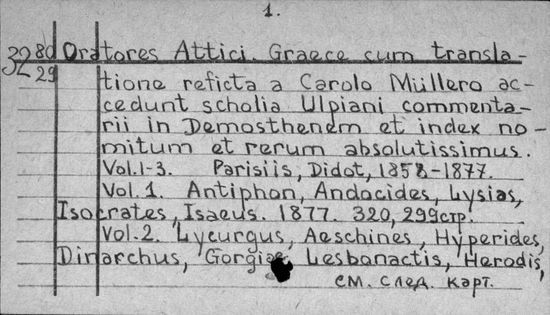 1.
3280
29
Oratores Attici. Graece cum transla-
tione reficta a Carolo Müllero ac-
cedunt scholia Ulpiani commenta-
rii in Demosthenem et index no-
mitum et rerum absolutissimus.
Vol.1-3. Parisiis, Didot, 1858-1877.
Vol. 1. Antiphon, Andocides, Lysias,
Isocrates, Isaeus. 1877. 320, 299стр.
Vol.2. Lycurgus, Aeschines, Hyperides,
Dinarchus, Gorgiae Lesbonactis, Herodis,
см. след. карт.